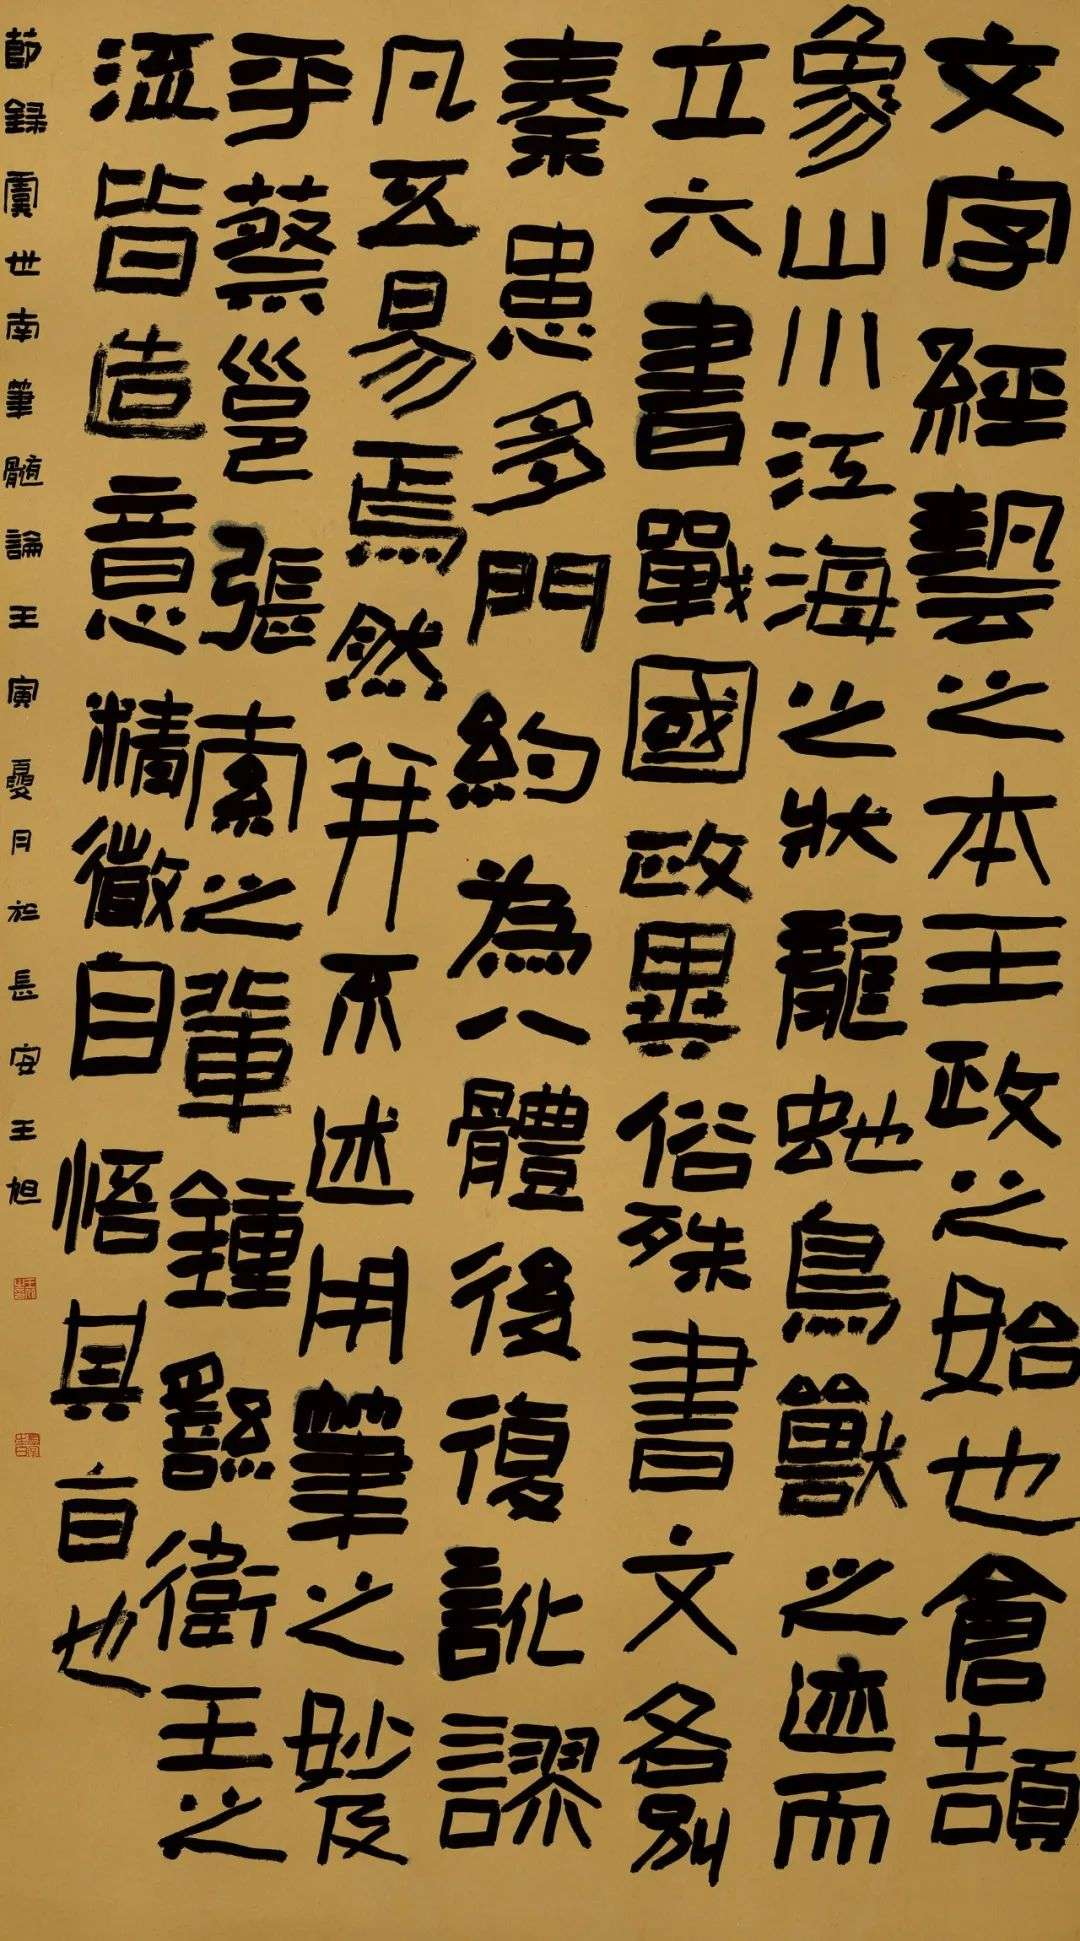 文字經藝之本王政之始也倉頡
象山川江海之狀龍虵鳥獸之迹而
立六書戰國政異俗殊書文各別
秦患多門約為八體後復訛謬
凡五易焉然并不述用筆之妙及
乎蔡邕張索之輩鍾繇衛王之
流皆造意精微自悟其旨也
節錄虞世南筆髓論壬寅夏月於長安王旭